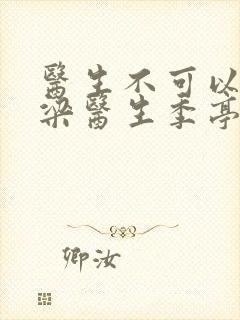 醫生不可以
梁醫生季亭
卿汝